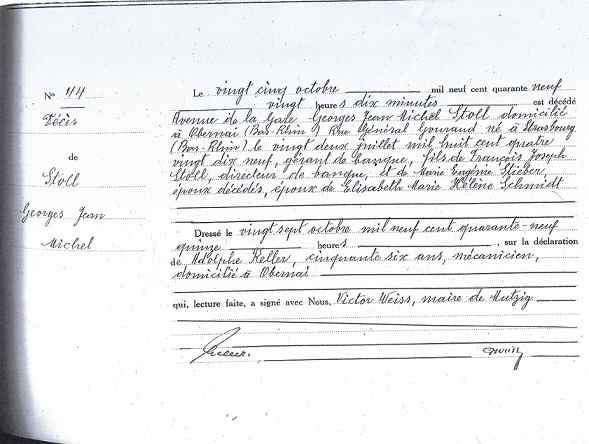 N° 44
Décès
de
Stoll
Georges Jean
Michel
Le vingt cinq octobre mil neuf cent quarante neuf
vingt heures dix minutes est décédé
Avenue de la Gare Georges Jean Michel Stoll domicilié
à Obernai (Bas-Rhin) Rue Général Gouraud né à Strasbourg
(Bas-Rhin) le vingt deux juillet mil huit cent quatre
vingt dix neuf, gérant de banque, fils de François Joseph
Stoll, directeur de banque, et de Marie Eugénie Stieber,
époux décédés, époux de Elisabeth Marie Hélène Schmidt
Dressé le vingt sept octobre mil neuf cent quarante-neuf
quinze heures, sur la déclaration
de Adolphe Keller, cinquante six ans, mécanicien,
domicilié à Obernai
qui, lecture faite, a signé avec Nous, Victor Weiss, maire de Mutzig